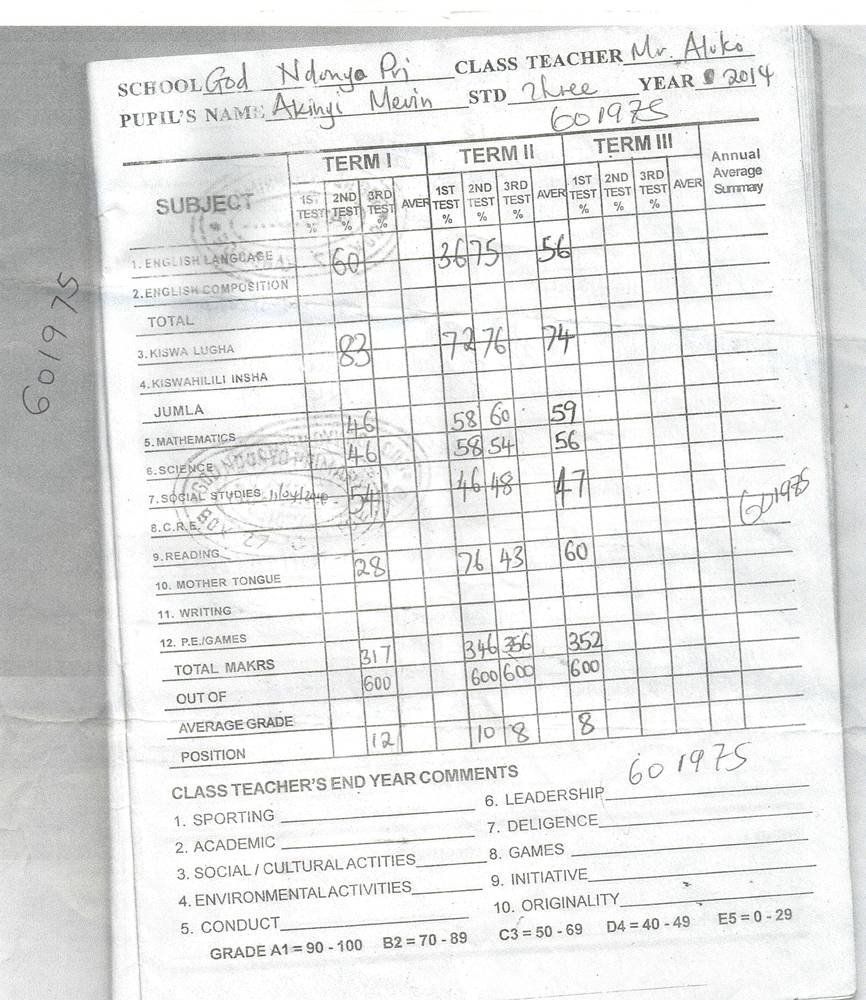 SCHOOL God Ndonyo Pri CLASS TEACHER Mr. Aluko
PUPIL'S NAME Akinyi Mevin STD three YEAR 2014
601975
SUBJECT TERM I TERM II TERM III Annual Average Summary
1ST TEST % 2ND TEST % 3RD TEST % AVER 1ST TEST % 2ND TEST % 3RD TEST % AVER 1ST TEST % 2ND TEST % 3RD TEST % AVER
1. ENGLISH LANGUAGE 60 36 75 56
2. ENGLISH COMPOSITION
TOTAL
3. KISWA LUGHA 83 72 76 74
4. KISWAHILILI INSHA
JUMLA
5. MATHEMATICS 46 58 60 59
6. SCIENCE 46 58 54 56
7. SOCIAL STUDIES 54 46 48 47
8. C.R.E.
9. READING 28 76 43 60
10. MOTHER TONGUE
11. WRITING
12. P.E./GAMES
TOTAL MAKRS 317 346 356 352
OUT OF 600 600 600 600
AVERAGE GRADE
POSITION 12 10 8 8
601975
601975
601975
CLASS TEACHER'S END YEAR COMMENTS
1. SPORTING 6. LEADERSHIP
2. ACADEMIC 7. DELIGENCE
3. SOCIAL / CULTURAL ACTITIES 8. GAMES
4. ENVIRONMENTAL ACTIVITIES 9. INITIATIVE
5. CONDUCT 10. ORIGINALITY
GRADE A1 = 90 - 100 B2 = 70 - 89 C3 = 50 - 69 D4 = 40 - 49 E5 = 0 - 29